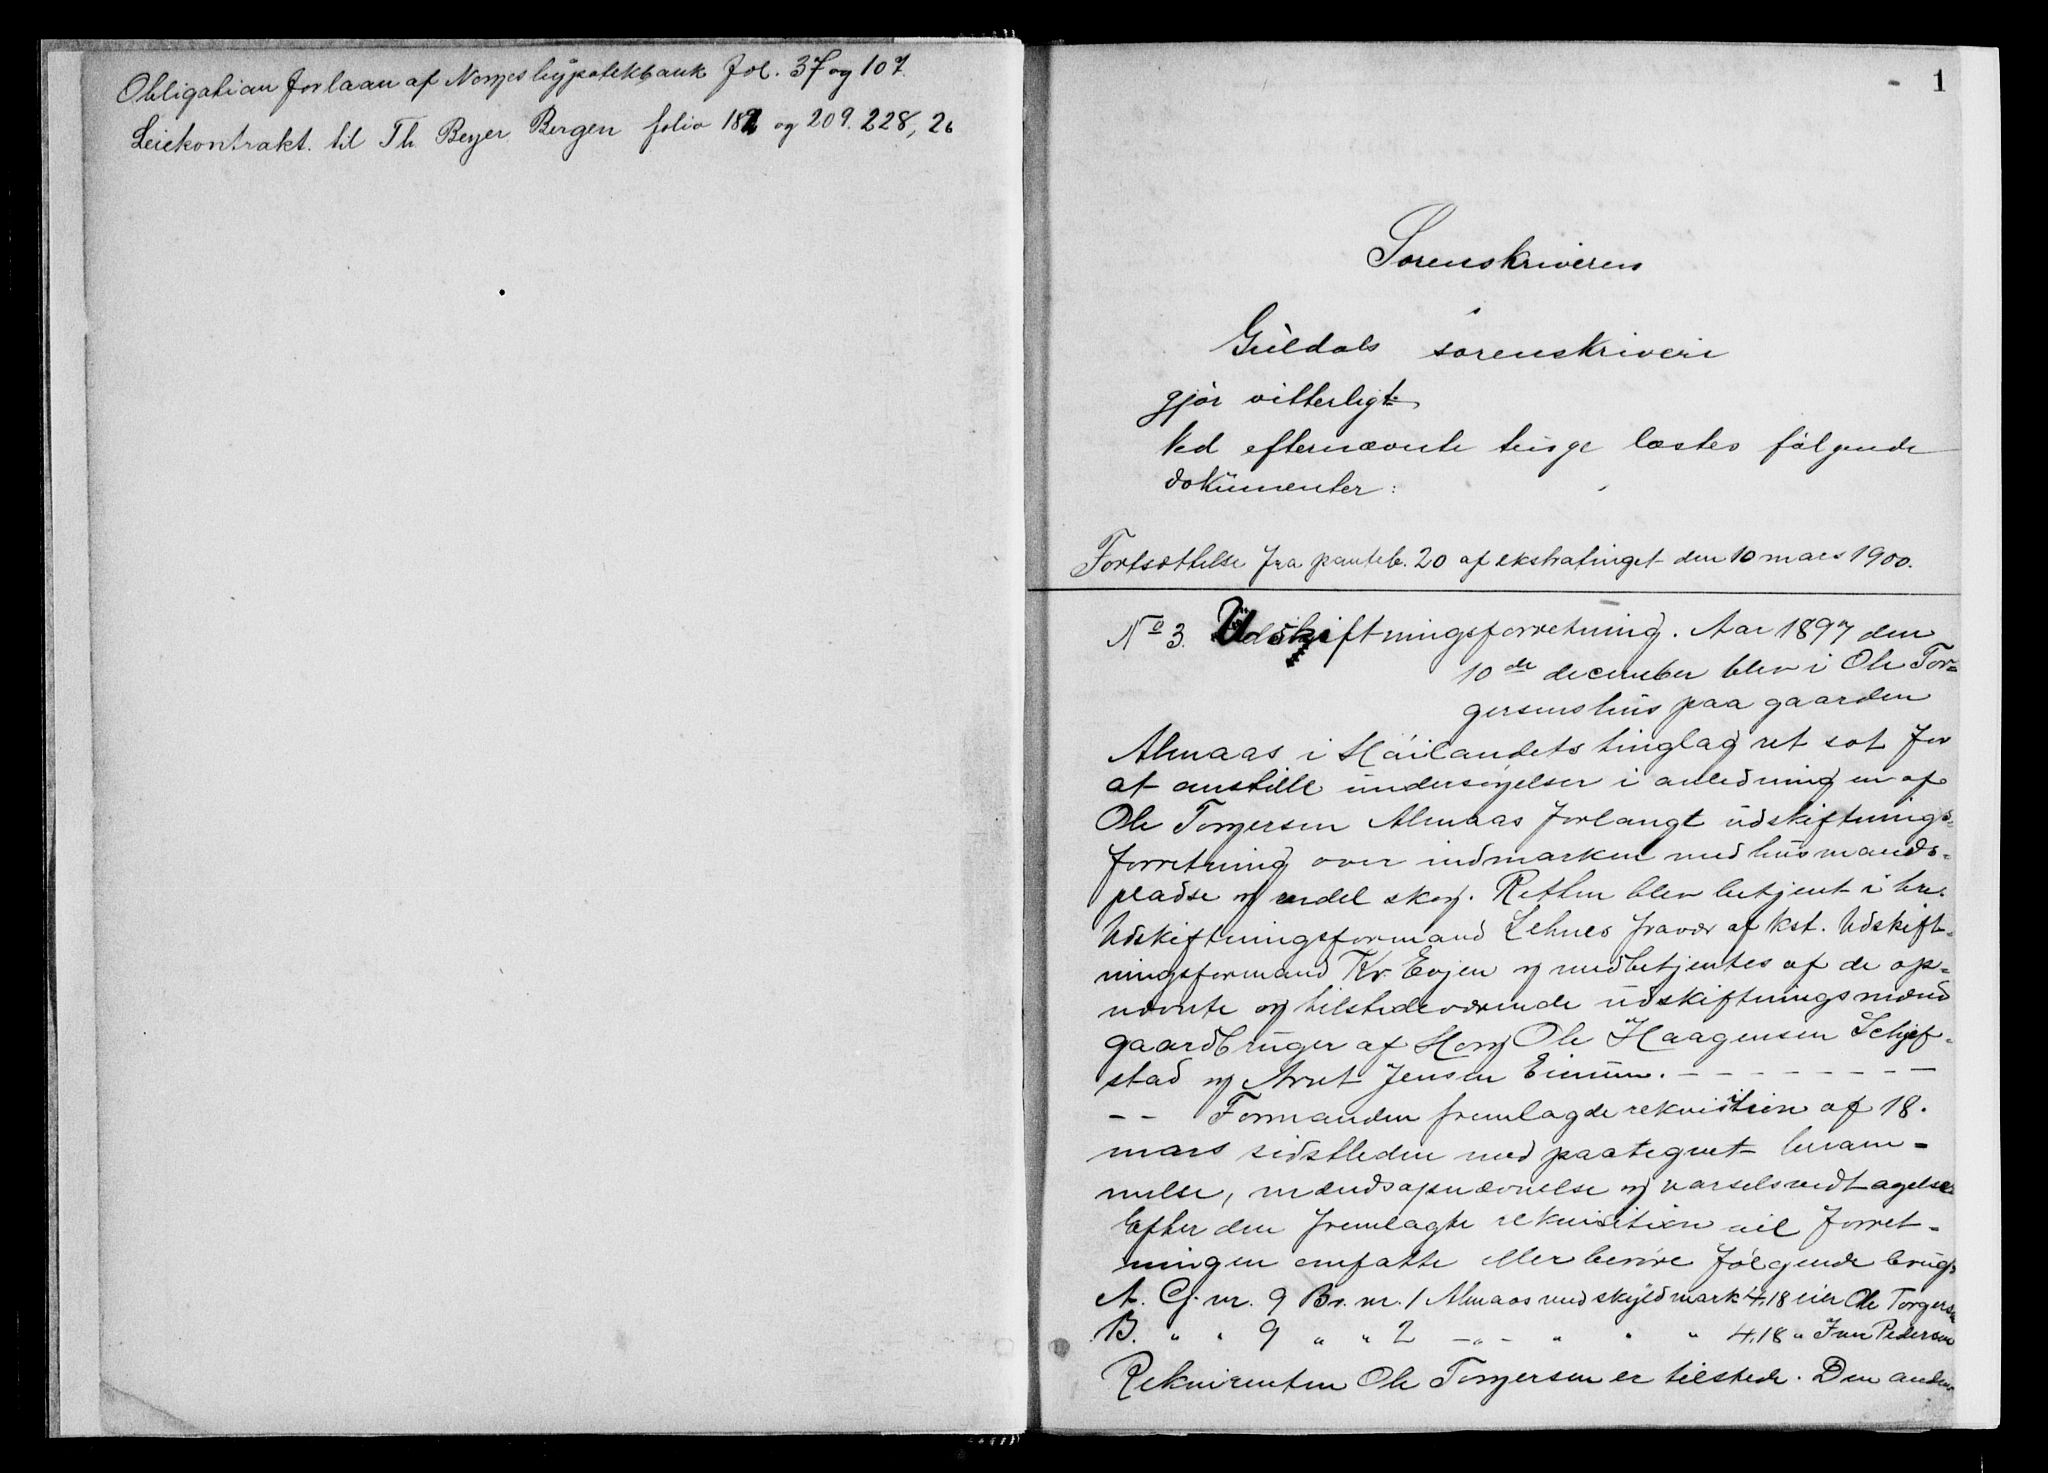 Obligation for laan af Norges hypotekbank fol. 37 og 107.
Leiekontrakt. til Th. Beyer Bergen folio 182 og 209. 228, 26
1
Sorenskriveren
i
Guldals sorenskriveri
gjør vitterligt
Ved efternævnte tinge læstes følgende
dokumenter:
Fortsættelse fra panteb. 20 af ekstratinget den 10 mars 1900.
No 3. Udskiftningsforretning. Aar 1897 den
10de december blev i Ole Tor=
gersens hus paa gaarden
Almaas i Høilandets tinglag ret sat for
at anstille undersøgelser i anledning en af
Ole Torgersen Almaas forlangt udskiftnings=
forretning over indmarken med husmands=
pladse og endel skog. Retten blev betjent i hr.
Udskiftningsformand Lehnes fravær af kst. Udskift=
ningsformand Kr. Evjen og medbetjentes af de op=
nævnte og tilstedeværende udskiftningsmænd
gaardbruger af Hog Ole Haagensen Schjef=
stad og Arnt Jensen Einum. - - - - - - - -
- - Formanden fremlagde rekvisition af 18.
mars sidstleden med paategnet beram=
melse, mændsopnævnelse og varselsvedtagelse
Efter den fremlagte rekvisition vil forret=
ningen omfatte eller berøre følgende brug:
A. G. nr. 9 Br. nr. 1 Almaas med skyldmark 4,18 eier Ole Torgersen
B. " " 9 " " 2 - " - " " " 4,18 " Iver Pedersen
Rekvirenten Ole Torgersen er tilstede. Den anden